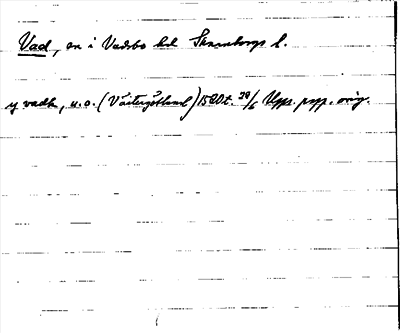 Vad, sn i Vadsbo hd Skaraborgs l.
y vadh, u.o. (Västergötland) 1520 t. 30/6 Upps. papp. orig.